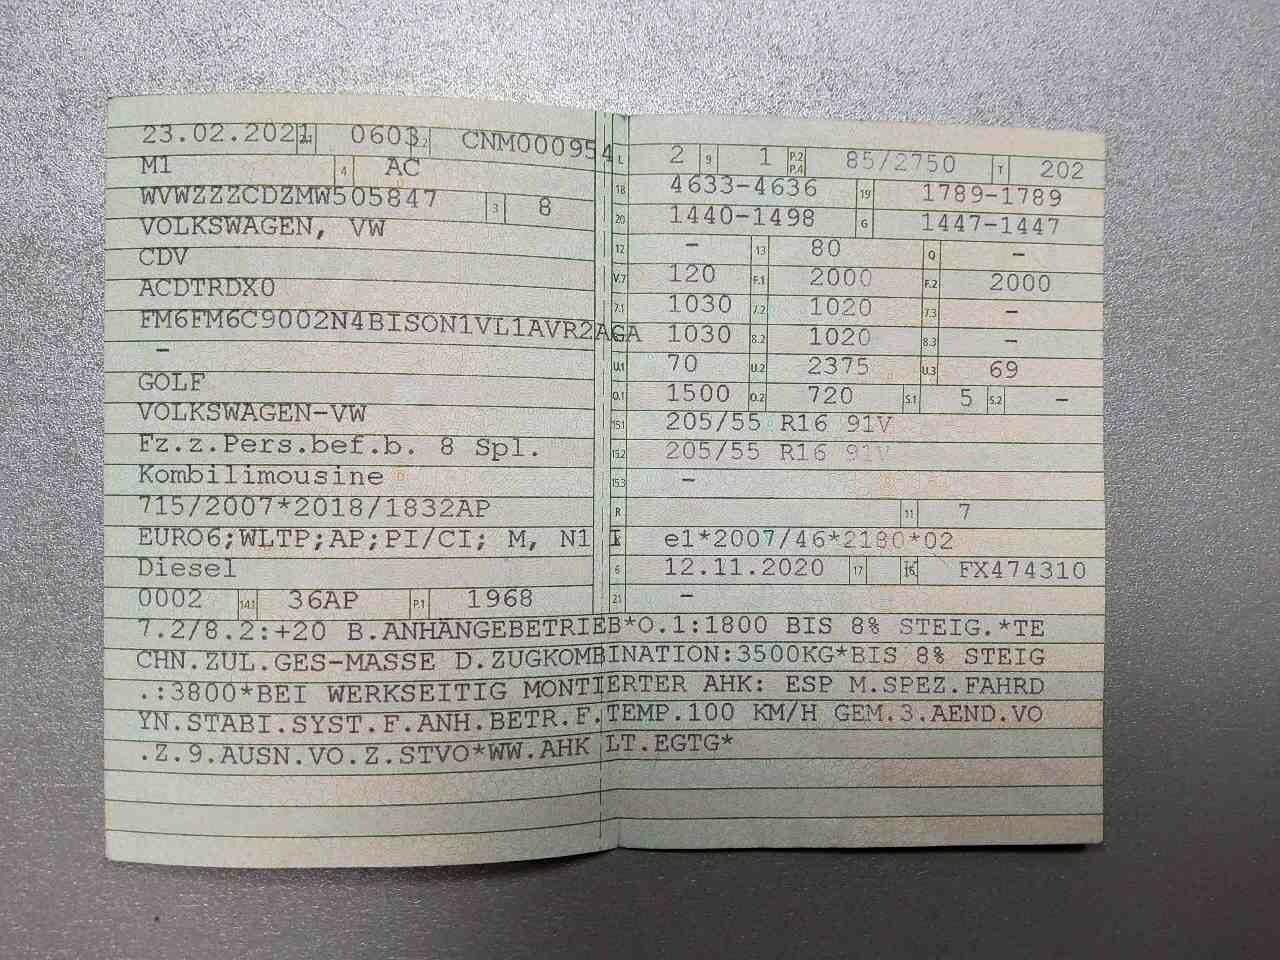 23.02.2021 0603 2.2 CNM000954
M1 4 AC
WVWZZZCDZMW505847 3 8
VOLKSWAGEN, VW
CDV
ACDTRDX0
FM6FM6C9002N4BISON1VL1AVR2AGA
–
GOLF
VOLKSWAGEN-VW
Fz.z.Pers.bef.b. 8 Spl.
Kombilimousine
715/2007*2018/1832AP
EURO6;WLTP;AP;PI/CI; M, N1 I
Diesel
0002 14.1 36AP P.1 1968
L 2 9 1 P.2 P.4 85/2750 T 202
18 4633-4636 19 1789-1789
20 1440-1498 G 1447-1447
12 – 13 80 Q –
V.7 120 F.1 2000 F.2 2000
7.1 1030 7.2 1020 7.3 –
1030 8.2 1020 8.3 –
U.1 70 U.2 2375 U.3 69
O.1 1500 O.2 720 S.1 5 S.2 –
15.1 205/55 R16 91V
15.2 205/55 R16 91V
15.3 –
R 11 7
e1*2007/46*2180*02
6 12.11.2020 17 16 FX474310
21 –
7.2/8.2:+20 B.ANHÄNGEBETRIEB*O.1:1800 BIS 8% STEIG.*TE
CHN.ZUL.GES-MASSE D.ZUGKOMBINATION:3500KG*BIS 8% STEIG
.:3800*BEI WERKSEITIG MONTIERTER AHK: ESP M.SPEZ.FAHRD
YN.STABI.SYST.F.ANH.BETR.F.TEMP.100 KM/H GEM.3.AEND.VO
.Z.9.AUSN.VO.Z.STVO*WW.AHK LT.EGTG*